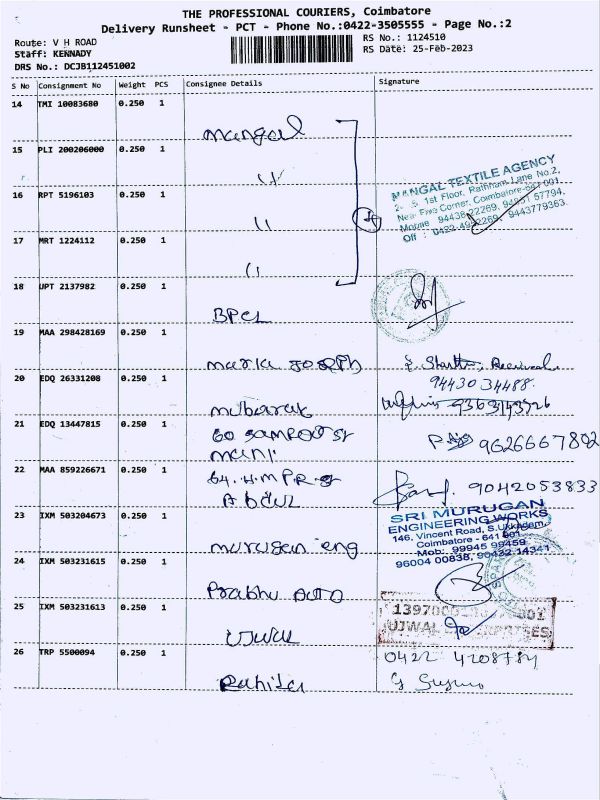 THE PROFESSIONAL COURIERS, Coimbatore
Delivery Runsheet - PCT - Phone No.:0422-3505555 - Page No.:2
Route: V H ROAD
Staff: KENNADY
DRS No.: DCJB112451002
RS No.: 1124510
RS Date: 25-Feb-2023
S No Consignment No Weight PCS Consignee Details Signature
14 TMI 10083680 0.250 1
Mangal
15 PLI 200206000 0.250 1
MANGAL TEXTILE AGENCY
1st Floor, Rathinam Lane No.2,
Near Five Corner, Coimbatore-641 001.
Mobile 94438 22269, 57794,
Off : 0422-4982269, 9443779363.
16 RPT 5196103 0.250 1
17 MRT 1224112 0.250 1
18 UPT 2137982 0.250 1
BPCL
19 MAA 298428169 0.250 1
Maria Joseph
Received
9443034488.
20 EDQ 26331208 0.250 1
Mubarak
9363143726
21 EDQ 13447815 0.250 1
60
Mani
9626667802
22 MAA 859226671 0.250 1
64. H.M.P.R.
Abdul
9042053833
SRI MURUGAN
ENGINEERING WORKS
146, Vincent Road, S.Ukkadam,
Coimbatore - 641 001.
Mob: 99945 99459
96004 00838, 90432 14341
23 IXM 503204673 0.250 1
Murugan eng
24 IXM 503231615 0.250 1
Prabhu Auto
25 IXM 503231613 0.250 1
Ujwal
UJWAL ENTERPRISES
26 TRP 5500094 0.250 1
0422 4208784